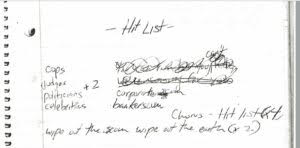 - Hit List -
cops
judges x 2
politicians corporate
celebrities bankerscum
Chorus - Hit list
wipe out the scum wipe out the earth (x 2)